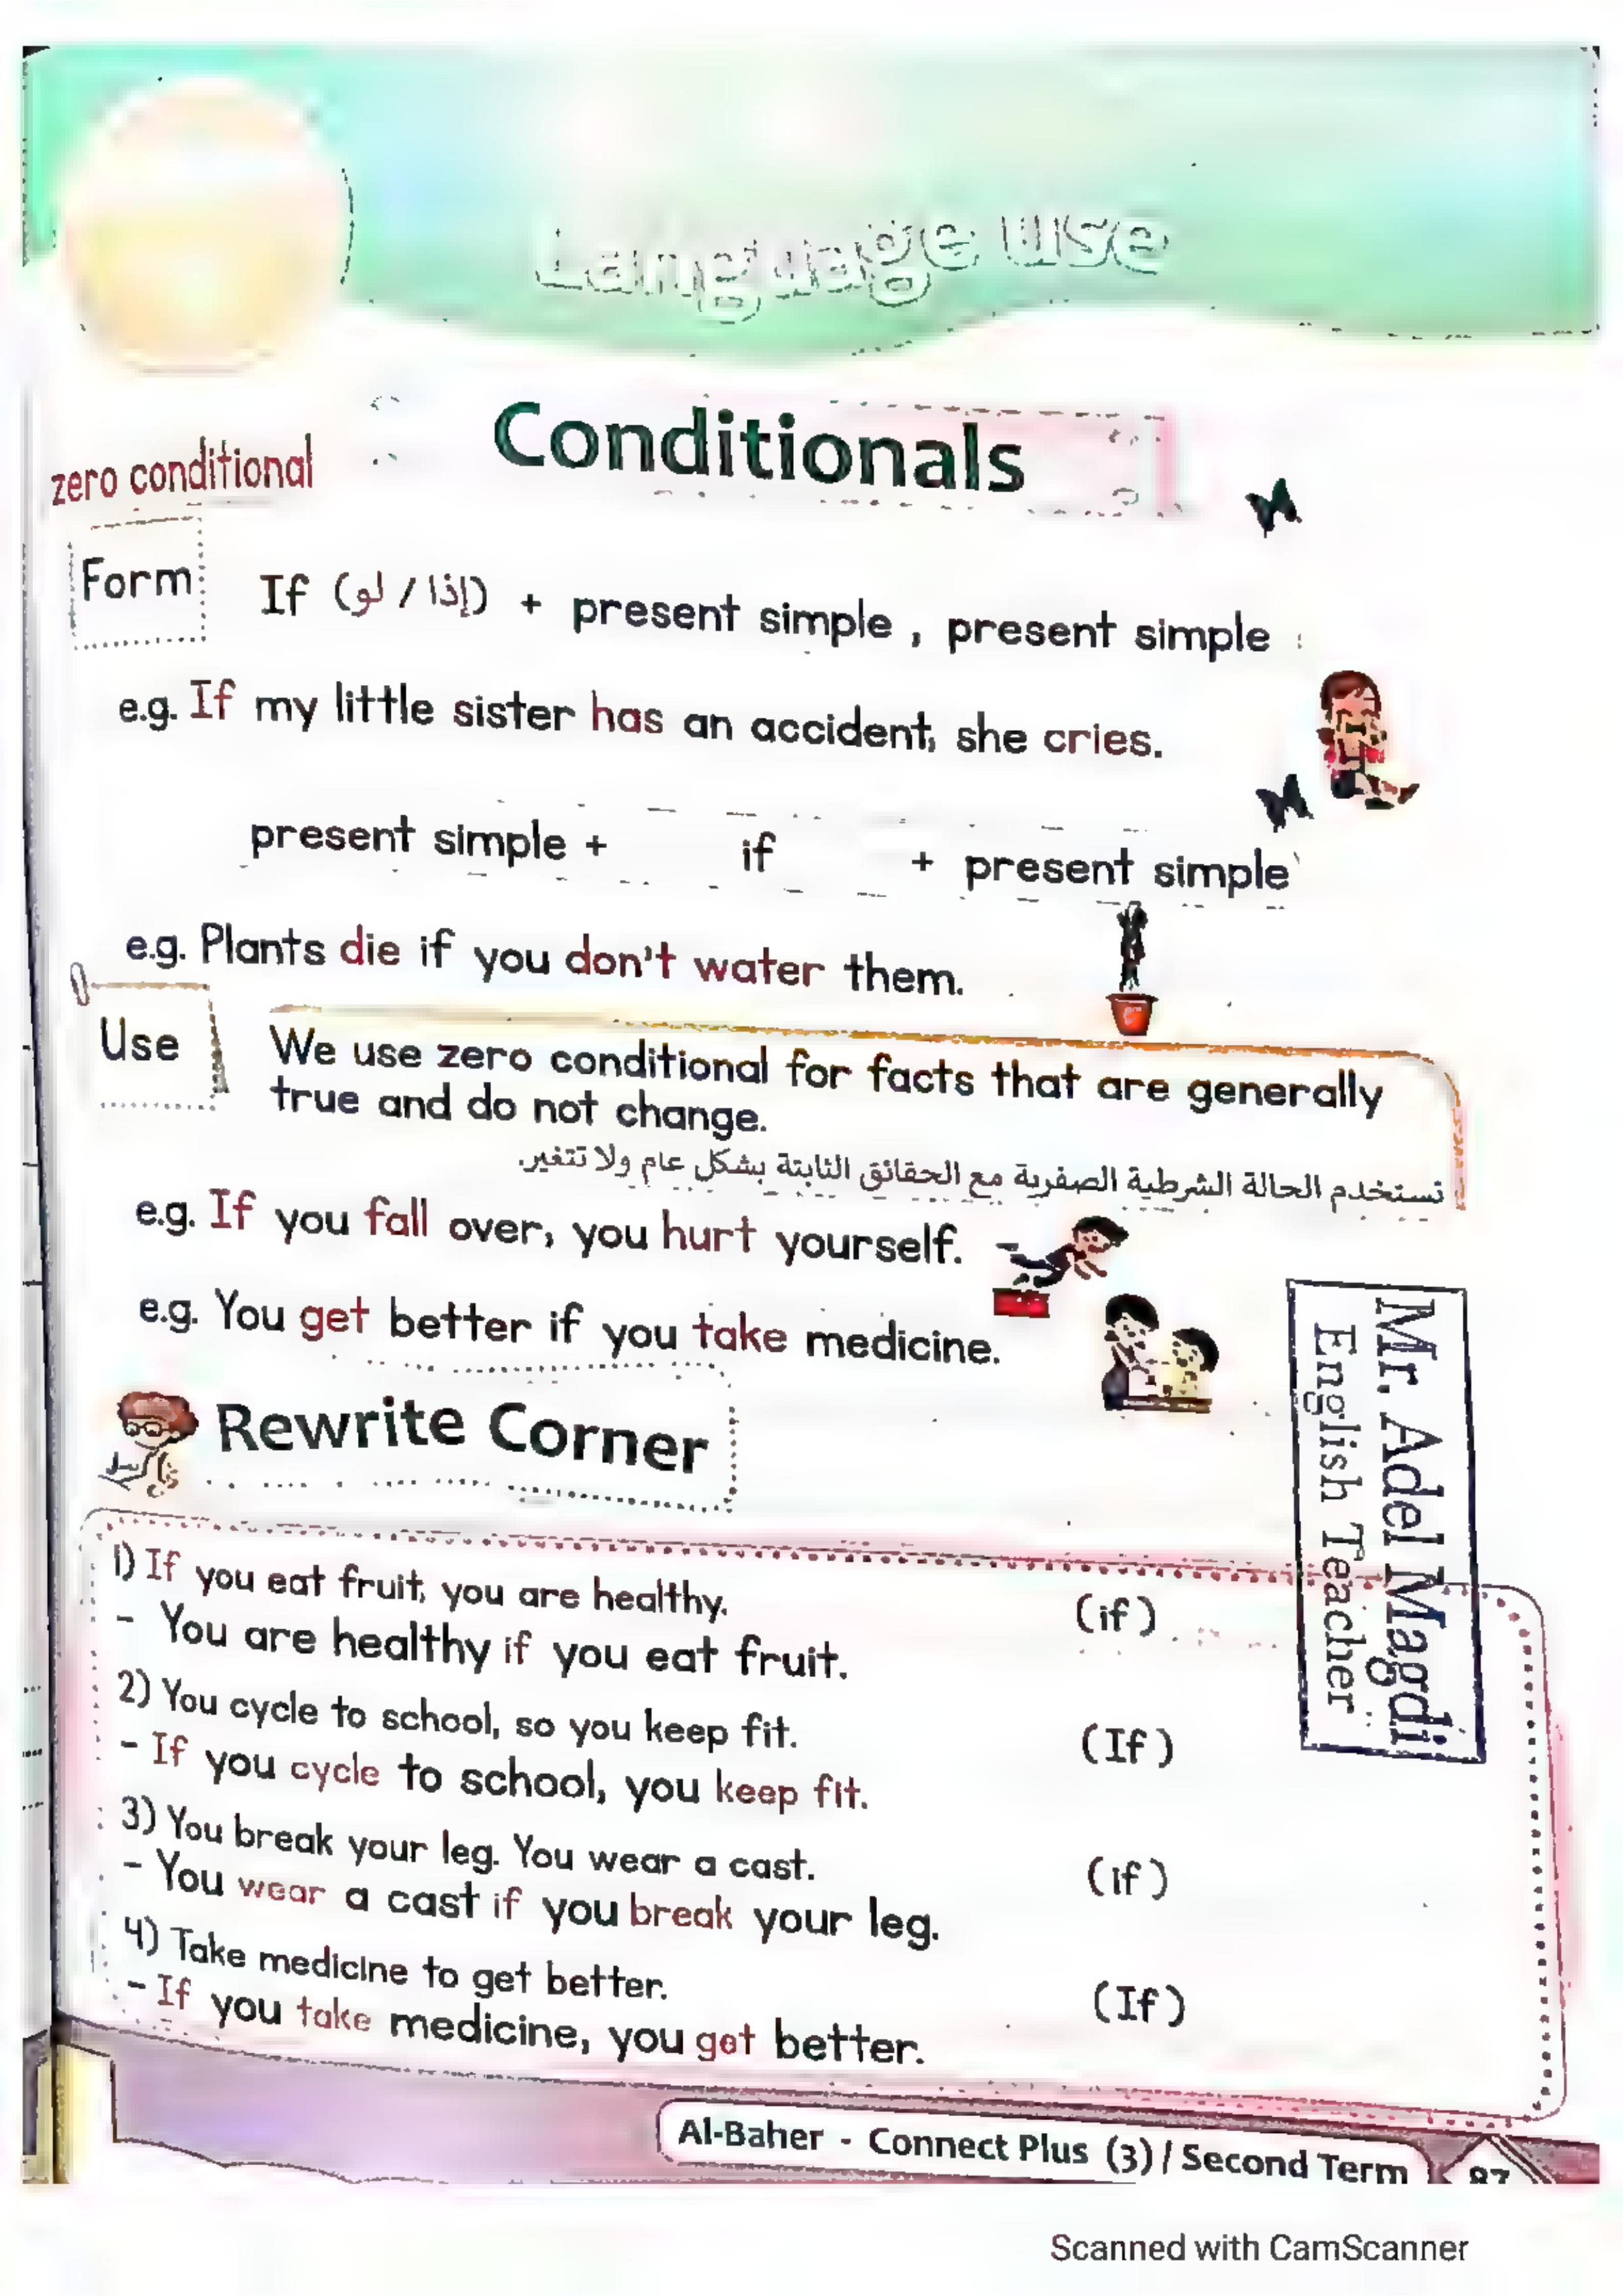 Language use
Conditionals
zero conditional
Form
If (إذا / لو) + present simple , present simple
e.g. If my little sister has an accident, she cries.
present simple + if + present simple
e.g. Plants die if you don't water them.
Use
We use zero conditional for facts that are generally
true and do not change.
تستخدم الحالة الشرطية الصفرية مع الحقائق الثابتة بشكل عام ولا تتغير.
e.g. If you fall over, you hurt yourself.
e.g. You get better if you take medicine.
Mr. Adel Magdi
English Teacher
Rewrite Corner
1) If you eat fruit, you are healthy. (if)
- You are healthy if you eat fruit.
2) You cycle to school, so you keep fit. (If)
- If you cycle to school, you keep fit.
3) You break your leg. You wear a cast. (if)
- You wear a cast if you break your leg.
4) Take medicine to get better. (If)
- If you take medicine, you get better.
Al-Baher - Connect Plus (3) / Second Term
Scanned with CamScanner